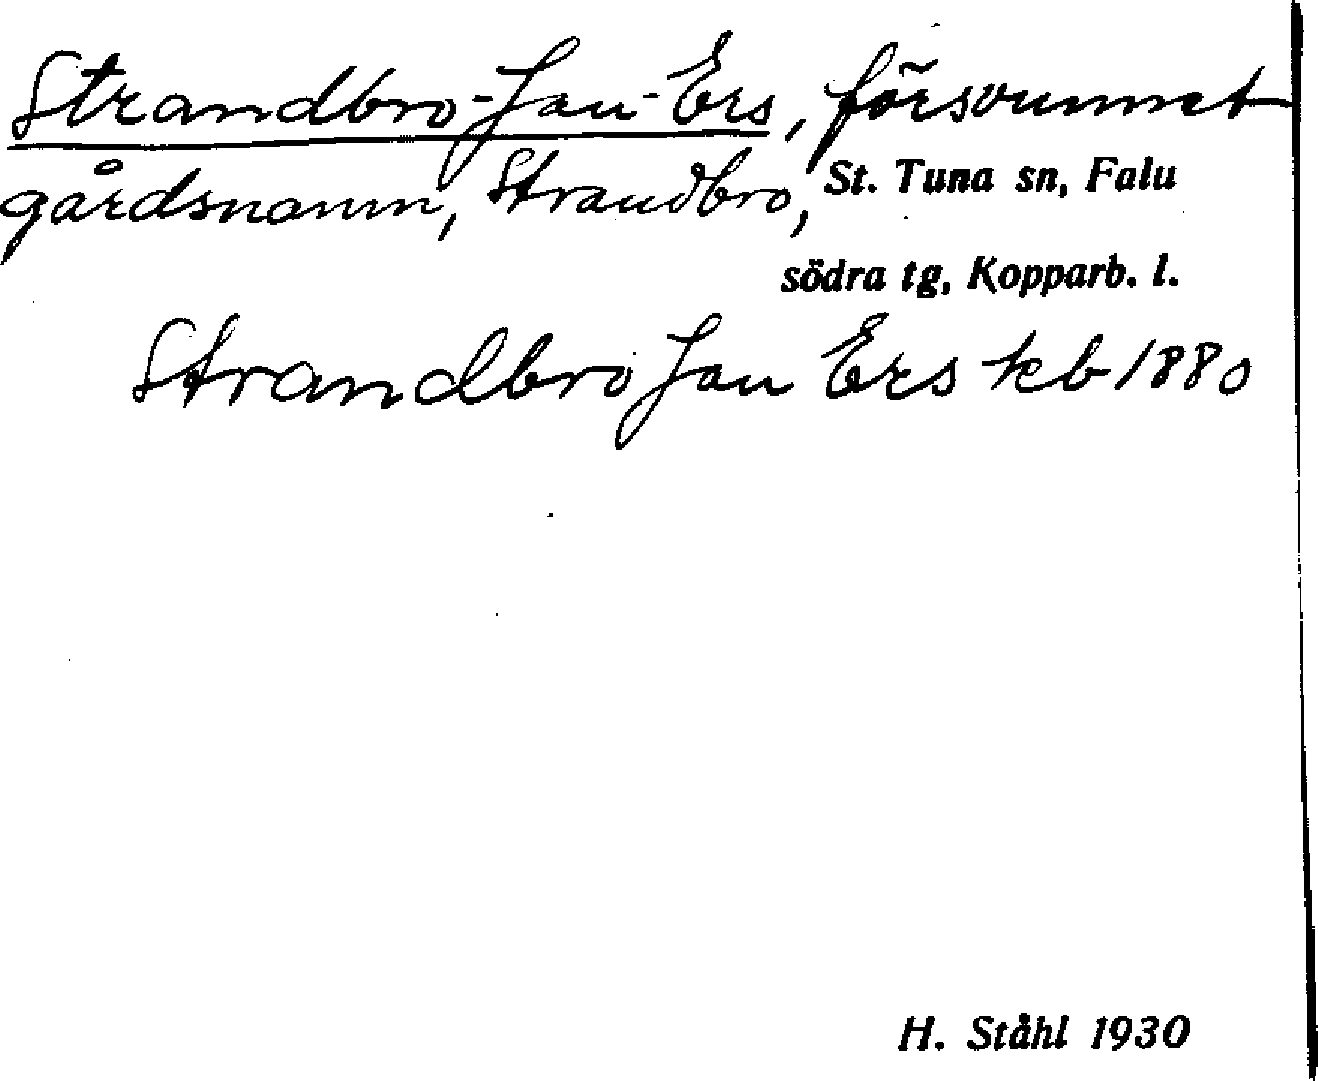 Strandbro-Jan-Ers, försvunnet
gårdsnamn, Strandbro, St. Tuna sn, Falu
södra tg, Kopparb. l.
Strandbro Jan Ers kb 1880
H. Ståhl 1930